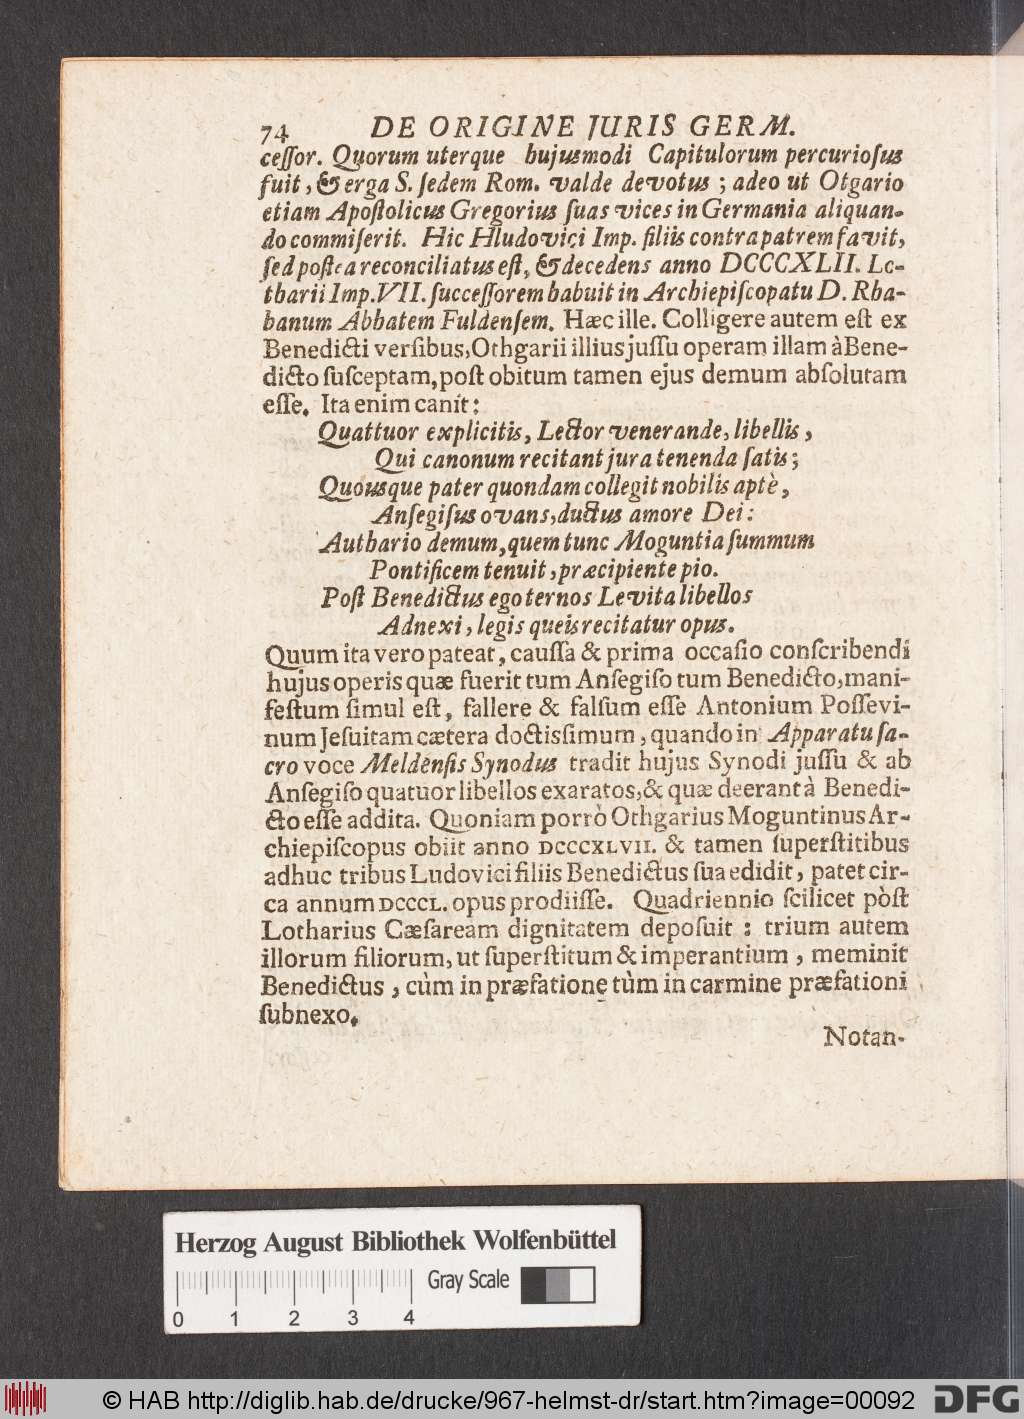 74 DE ORIGINE JURIS GERM.
ceſſor. Quorum uterque hujusmodi Capitulorum percurioſus
fuit, & erga S. ſedem Rom. valde devotus ; adeo ut Otgario
etiam Apoſtolicus Gregorius ſuas vices in Germania aliquan-
do commiſerit. Hic Hludovici Imp. filiis contra patrem favit,
ſed poſtea reconciliatus eſt, & decedens anno DCCCXLII. Lo-
tharii Imp. VII. ſucceſſorem habuit in Archiepiſcopatu D. Rha-
banum Abbatem Fuldenſem. Hæc ille. Colligere autem eſt ex
Benedicti verſibus, Othgarii illius juſſu operam illam à Bene-
dicto ſuſceptam, poſt obitum tamen ejus demum abſolutam
eſſe. Ita enim canit:
Quattuor explicitis, Lector venerande, libellis,
Qui canonum recitant jura tenenda ſatis;
Quousque pater quondam collegit nobilis aptè,
Anſegiſus ovans, ductus amore Dei:
Authario demum, quem tunc Moguntia ſummum
Pontificem tenuit, præcipiente pio.
Poſt Benedictus ego ternos Levita libellos
Adnexi, legis queis recitatur opus.
Quum ita vero pateat, cauſſa & prima occaſio conſcribendi
hujus operis quæ fuerit tum Anſegiſo tum Benedicto, mani-
feſtum ſimul eſt, fallere & falſum eſſe Antonium Poſſevi-
num Jeſuitam cætera doctisſimum, quando in Apparatu ſa-
cro voce Meldenſis Synodus tradit hujus Synodi juſſu & ab
Anſegiſo quatuor libellos exaratos, & quæ deerant à Benedi-
cto eſſe addita. Quoniam porrò Othgarius Moguntinus Ar-
chiepiſcopus obiit anno DCCCXLVII. & tamen ſuperſtitibus
adhuc tribus Ludovici filiis Benedictus ſua edidit, patet cir-
ca annum DCCCL. opus prodiiſſe. Quadriennio ſcilicet pòſt
Lotharius Cæſaream dignitatem depoſuit : trium autem
illorum filiorum, ut ſuperſtitum & imperantium, meminit
Benedictus, cùm in præfatione tùm in carmine præfationi
ſubnexo.
Notan-
Herzog August Bibliothek Wolfenbüttel
Gray Scale
0 1 2 3 4
© HAB http://diglib.hab.de/drucke/967-helmst-dr/start.htm?image=00092 DFG